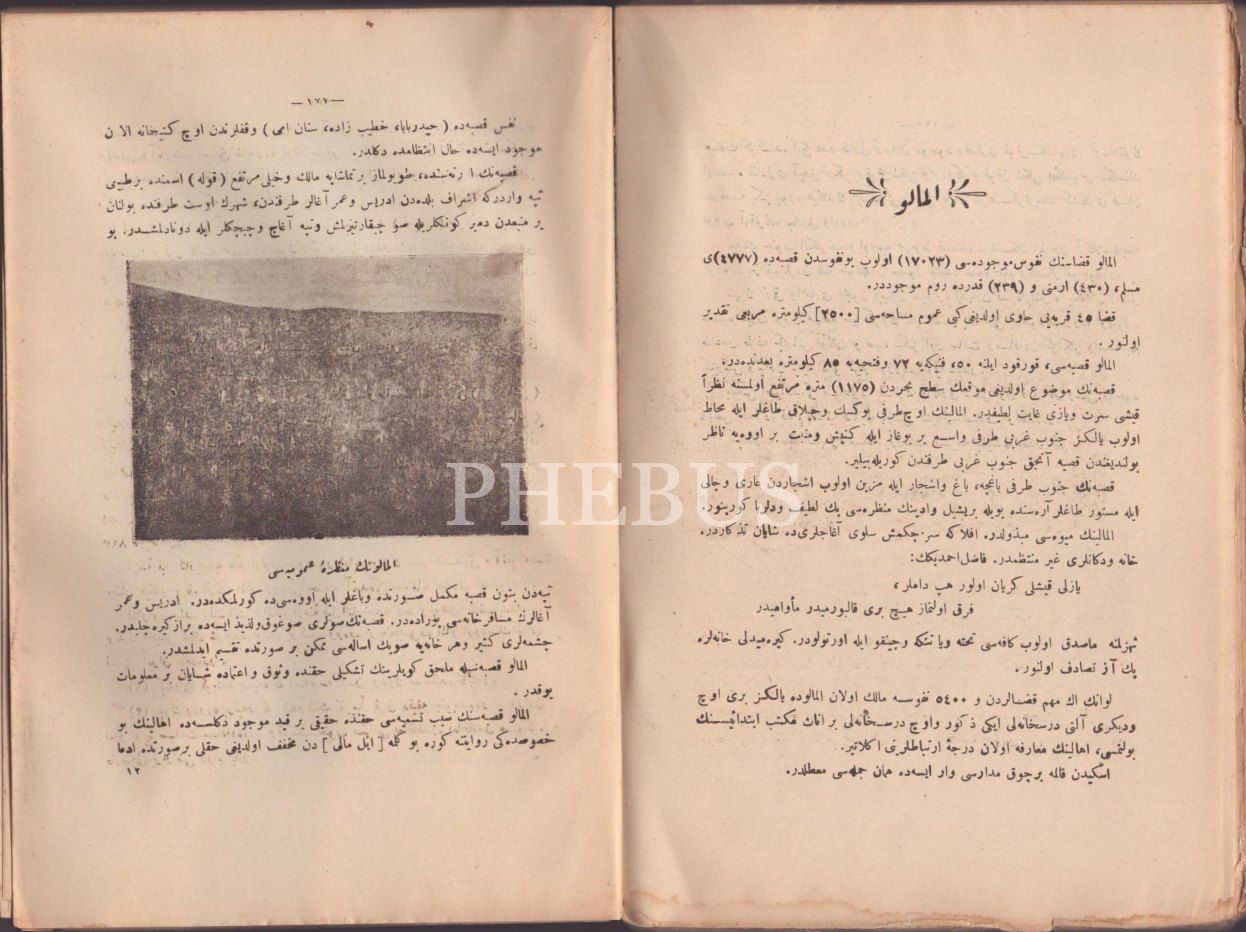 المالو
المالو قضاسنك نفوس موجوده‌سی (١٧٠٢٣) اولوب بونفوسدن قصبه‌ده (٤٧٧٧)ی
مسلم، (٤٣٠) ارمنی و (٢٣٩) قدرده روم موجوددر.
قضا ٤٥ قریه‌یی حاوی اولدیغی کبی عموم مساحه‌سی [٢٥٠٠] کیلومتره مربعی تقدیر
اولنور.
المالو قصبه‌سی، قورقود ایلنه ٥٠، فنیکه‌یه ٧٢ وفتحیه‌یه ٨٥ کیلومتره بعدنده‌در.
قصبه‌نك موضوع اولدیغی موقعك سطح بحردن (١١٧٥) متره مرتفع اولمسنه نظراً
قیشی سرت ویازی غایت لطیفدر. المالینك اوچ طرفی یوکسك وچپلاق طاغلر ایله محاط
اولوب یالکز جنوب غربی طرفی واسع بر بوغاز ایله کنیش ومنبت بر اووه‌یه ناظر
بولندیغندن قصبه آنجق جنوب غربی طرفندن کوریله‌بیلیر.
قصبه‌نك جنوب طرفی باغچه، باغ واشجار ایله مزین اولوب اشجاردن عاری وچالی
ایله مستور طاغلر آره‌سنده بویله بریشیل وادینك منظره‌سی پك لطیف ودلربا کورینور.
المالینك میوه‌سی مبذولدر. افلاکه سرچکمش سلوی آغاجلری‌ده شایان تذکاردر.
خانه ودکانلری غیر منتظمدر. فاضل احمدبکك:
یازلی قیشلی کریان اولور هپ داملر،
فرق اولنماز هیچ بری قالبورمیدر مأواهیدر
ماصدق اولوب کافه‌سی تخته ویا تنکه وچینقو ایله اورتولودر. کیره‌میدلی خانه‌لره
پك آز تصادف اولنور.
لوانك اك مهم قضالردن و ٥٤٠٠ نفوسه مالك اولان المالوده یالکز بری اوچ
ودیکری آلتی درسخانه‌لی ایکی ذکور واوچ درسخانه‌لی بر اناث مکتب ابتدائیسنك
بولنمسی، اهالینك معارفه اولان درجهٔ ارتباطلرینی اکلاتیر.
اسکیدن قالمه برچوق مدارسی وار ایسه‌ده همان جمله‌سی معطلدر.
— ١٧٧ —
نفس قصبه‌ده (حیدربابا، خطیب زاده، سنان امی) وقفلرندن اوچ کتبخانه الآن
موجود ایسه‌ده حال انتظامده دکلدر.
قصبه‌نك اورته‌سنده، طویولماز برتماشایه مالك وخیلی مرتفع (قوله) اسمنده برطبیعی
تپه واردرکه اشراف بلده‌دن ادریس وعمر آغالر طرفندن، شهرك اوست طرفنده بولنان
بر منبعدن دمیر کونکلریله صو چیقارتیرلمش وتپه آغاج وچیچکلر ایله دونادلمشدر. بو
المالونك منظرهٔ عمومیسی
تپه‌دن بتون قصبه مکمل صورتده وباغلر ایله اووه‌سی‌ده کورلمکده‌در. ادریس وعمر
آغالرك مسافرخانه‌سی بوراده‌در. قصبه‌نك صولری صوغوق ولذیذ ایسه‌ده براز کیره‌چلیدر.
چشمه‌لری کثیر وهر خانه‌یه صویك اساله‌سی ممکن بر صورتده تقسیم ایدلمشدر.
المالو قصبه‌سیله ملحق کویلرینك تشکیلی حقنده وثوق واعتماده شایان بر معلومات
یوقدر.
المالو قصبه‌سنك سبب تسمیه‌سی حقنده حقیقی بر قید موجود دکلسه‌ده اهالینك بو
خصوصده‌کی روایتنه کوره بو کله [ایل مالی] دن مخفف اولدیغی حقلی برصورتده ادعا
١٢
PHEBUS